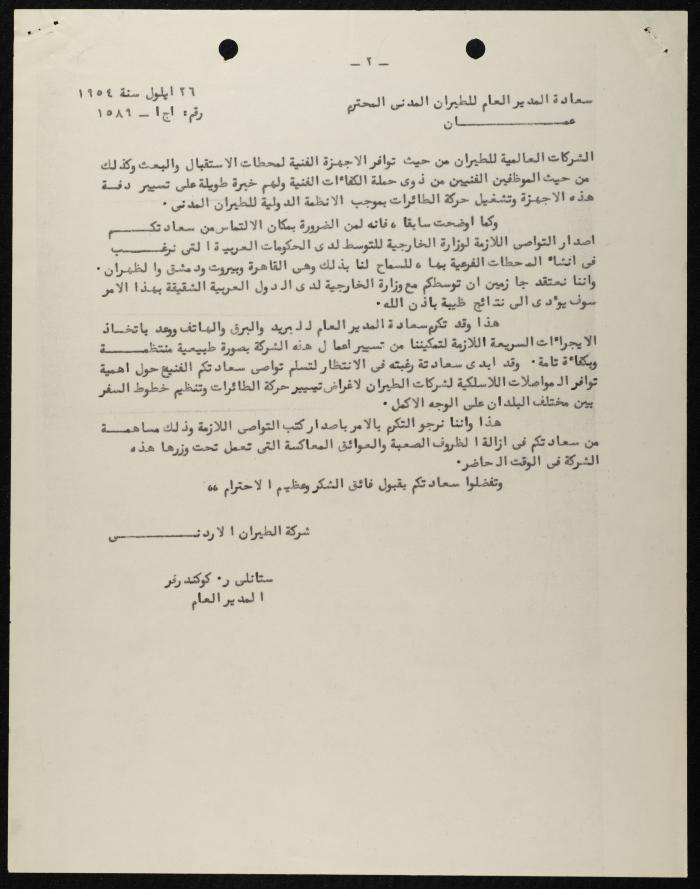 - ٢ -
٢٦ ايلول سنة ١٩٥٤
رقم: اج١ - ١٥٨٩
سعادة المدير العام للطيران المدني المحترم
عمــــــــــان
الشركات العالمية للطيران من حيث توافر الاجهزة الفنية لمحطات الاستقبال والبعث وكذلك
من حيث الموظفين الفنيين من ذوى حملة الكفاءات الفنية ولهم خبرة طويلة على تسيير دفــة
هذه الاجهزة وتشغيل حركة الطائرات بموجب الانظمة الدولية للطيران المدنى.
وكما اوضحت سابقا ، فانه لمن الضرورة بمكان الالتماس من سعادتكــــم
اصدار التواصي اللازمة لوزارة الخارجية للتوسط لدى الحكومات العربية التى نرغــــب
فى انشاء المحطات الفرعية بها ، للسماح لنا بذلك وهى القاهرة وبيروت ودمشق والظهران.
واننا نعتقد جازمين ان توسطكم مع وزارة الخارجية لدى الدول العربية الشقيقة بهذا الامر
سوف يؤدى الى نتائج طيبة باذن الله.
هذا وقد تكرم سعادة المدير العام للبريد والبرق والهاتف ووعد باتخــاذ
الايجراءات السريعة اللازمة لتمكيننا من تسيير اعمال هذه الشركة بصورة طبيعية منتظمــــة
وبكفاءة تامة. وقد ابدى سعادته رغبته فى الانتظار لتسلم تواصى سعادتكم الفنيج حول اهمية
توافر المواصلات اللاسلكية لشركات الطيران لاغراض تيسيير حركة الطائرات وتنظيم خطوط السفر
بين مختلف البلدان على الوجه الاكمل.
هذا واننا نرجو التكرم بالامر باصدار كتب التواصى اللازمة وذلك مساهمــة
من سعادتكم فى ازالة الظروف الصعبة والعوائق المعاكسة التى تعمل تحت وزرها هذه
الشركة فى الوقت الحاضر.
وتفضلوا سعادتكم بقبول فائق الشكر وعظيم الاحترام ،،
شركة الطيران الاردنــــــــــى
ستانلى ر. كوكندرفر
المدير العام